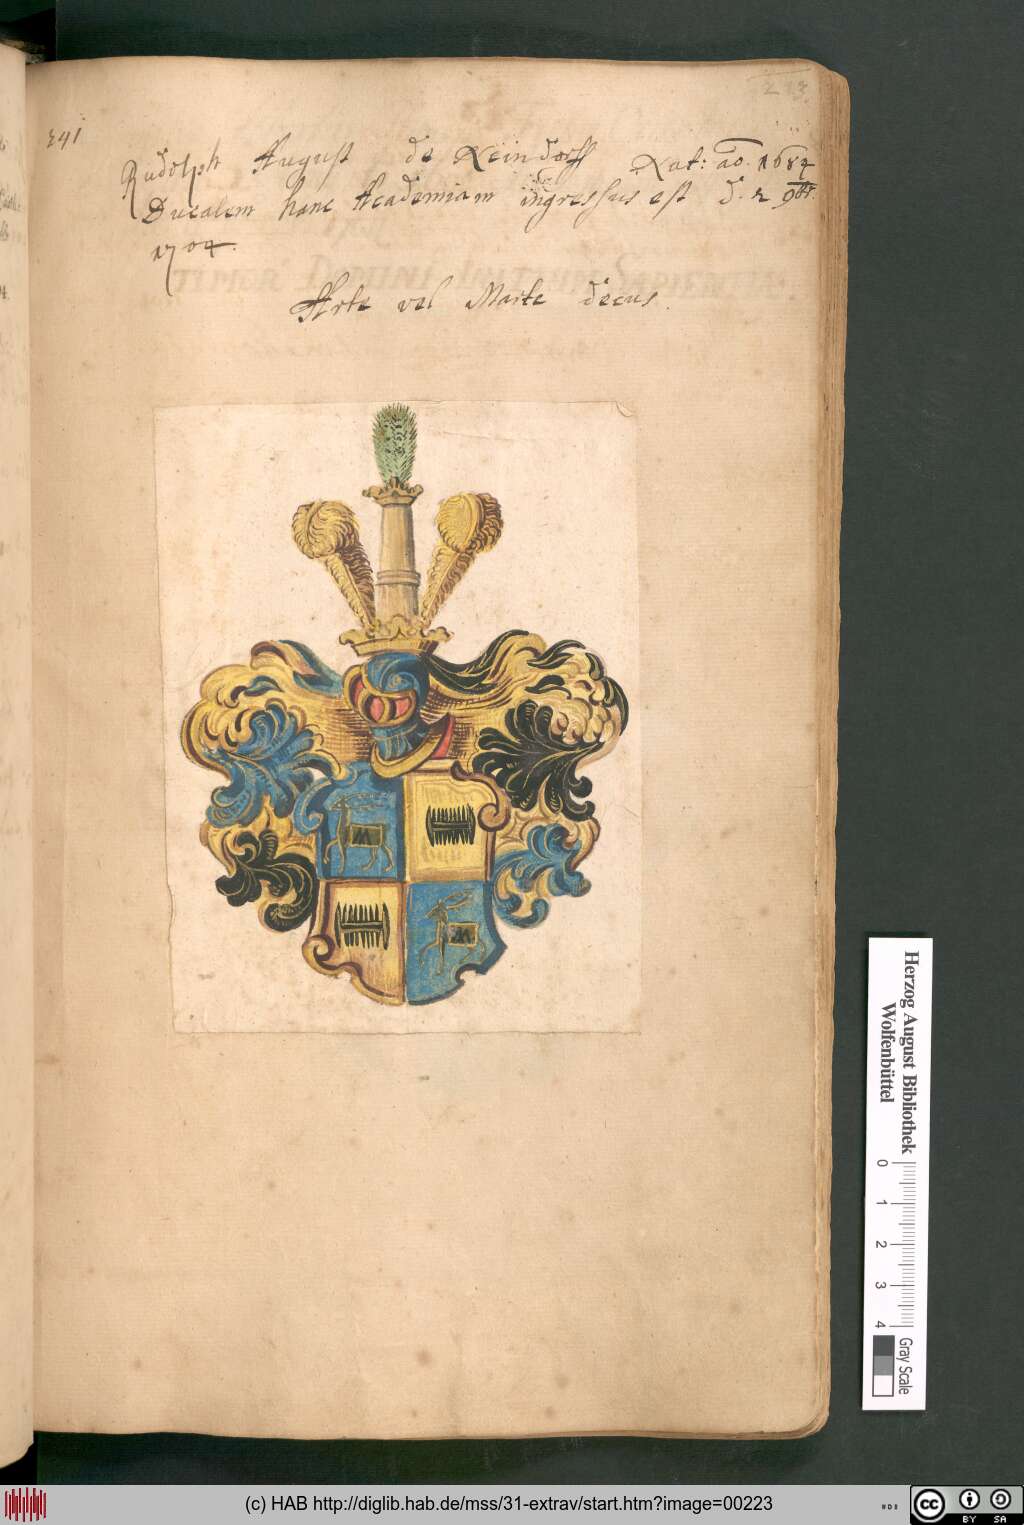 213.
241
Rudolph August de Neindorff Nat: ao. 1684
Ducalem hanc Academiam ingressus est d. 2 9br.
1704.
TIMOR DOMINI INITIUM SAPIENTI
Arte vel Marte decus.
W
W
Herzog August Bibliothek
Wolfenbüttel
0 1 2 3 4
Gray Scale
(c) HAB http://diglib.hab.de/mss/31-extrav/start.htm?image=00223
cc BY SA